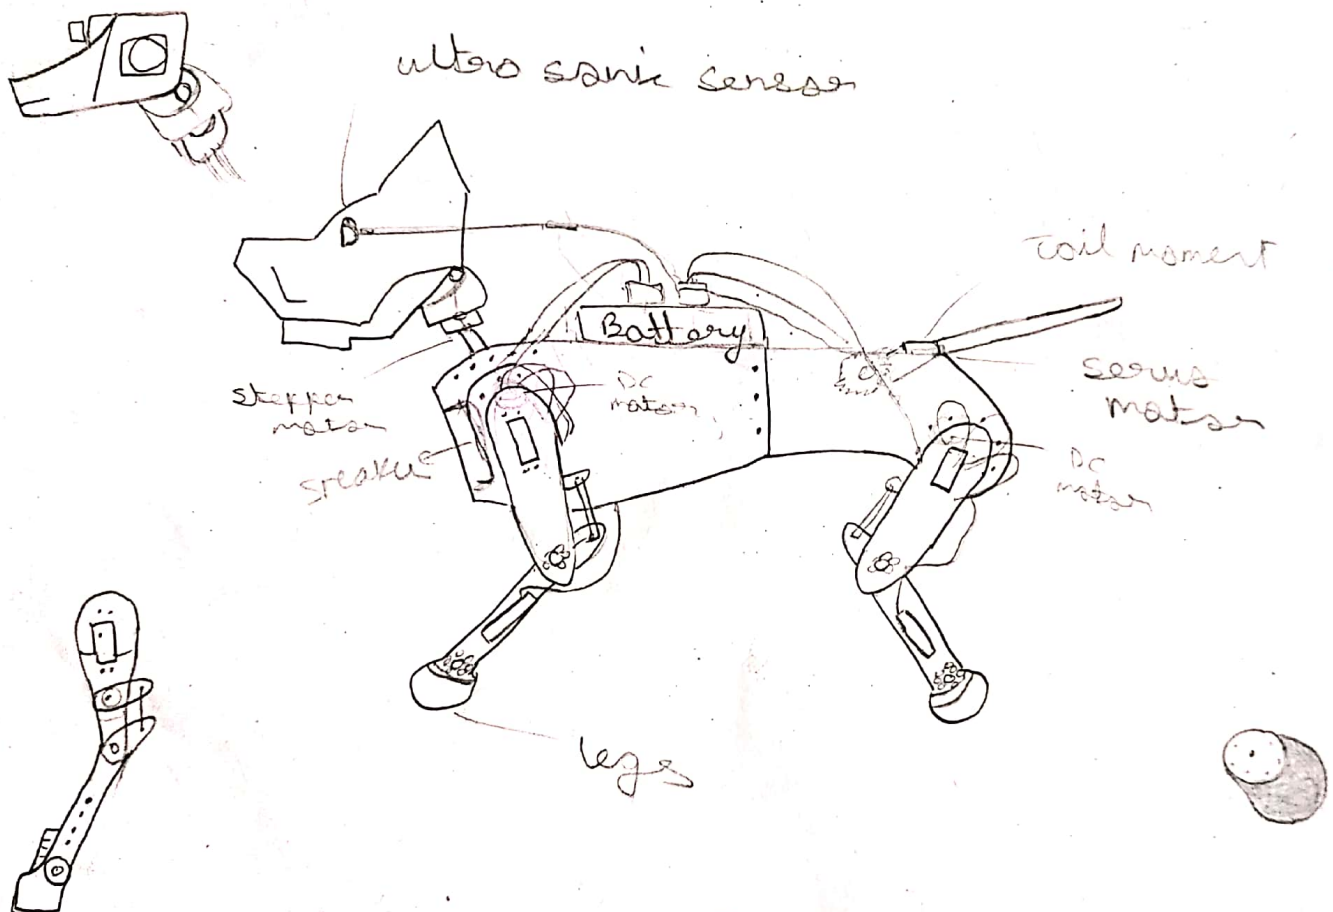 ultro sonic sensor
tail moment
Battery
DC
motor
stepper
motor
servo
motor
speaker
DC
motor
legs